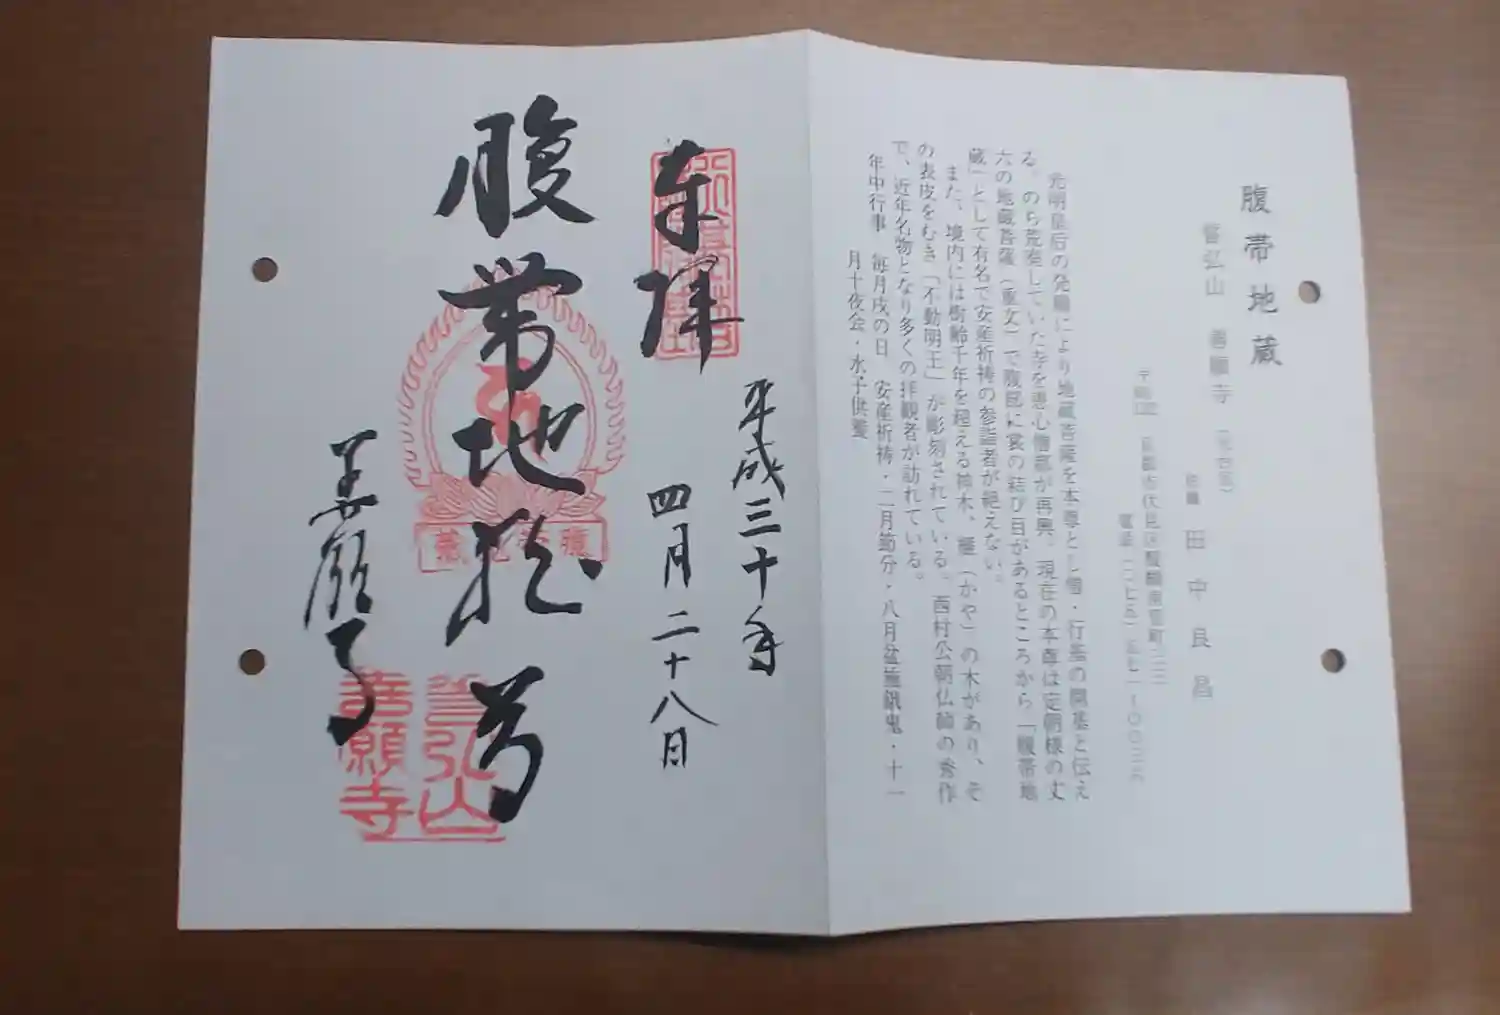 腹帯地蔵
誓弘山 善願寺
住職 田中良昌
光明皇后の発願により地蔵菩薩を本尊とし僧・行基の開基と伝え
る。のち荒廃していた寺を恵心僧都が再興、現在の本尊は定朝様の丈
六の地蔵菩薩（重文）で腹部に裳の結び目があるところから「腹帯地
蔵」として有名で安産祈祷の参詣者が絶えない。
また、境内には樹齢千年を超える神木、榧（かや）の木があり、そ
の表皮をむき「不動明王」が彫刻されている。西村公朝仏師の秀作
で、近年名物となり多くの拝観者が訪れている。
年中行事 毎月戌の日 安産祈祷・二月節分・八月盆施餓鬼・十一
月十夜会・水子供養
平成三十年
四月二十八日
奉拝
腹帯地蔵尊
善願寺
弘山
善願寺